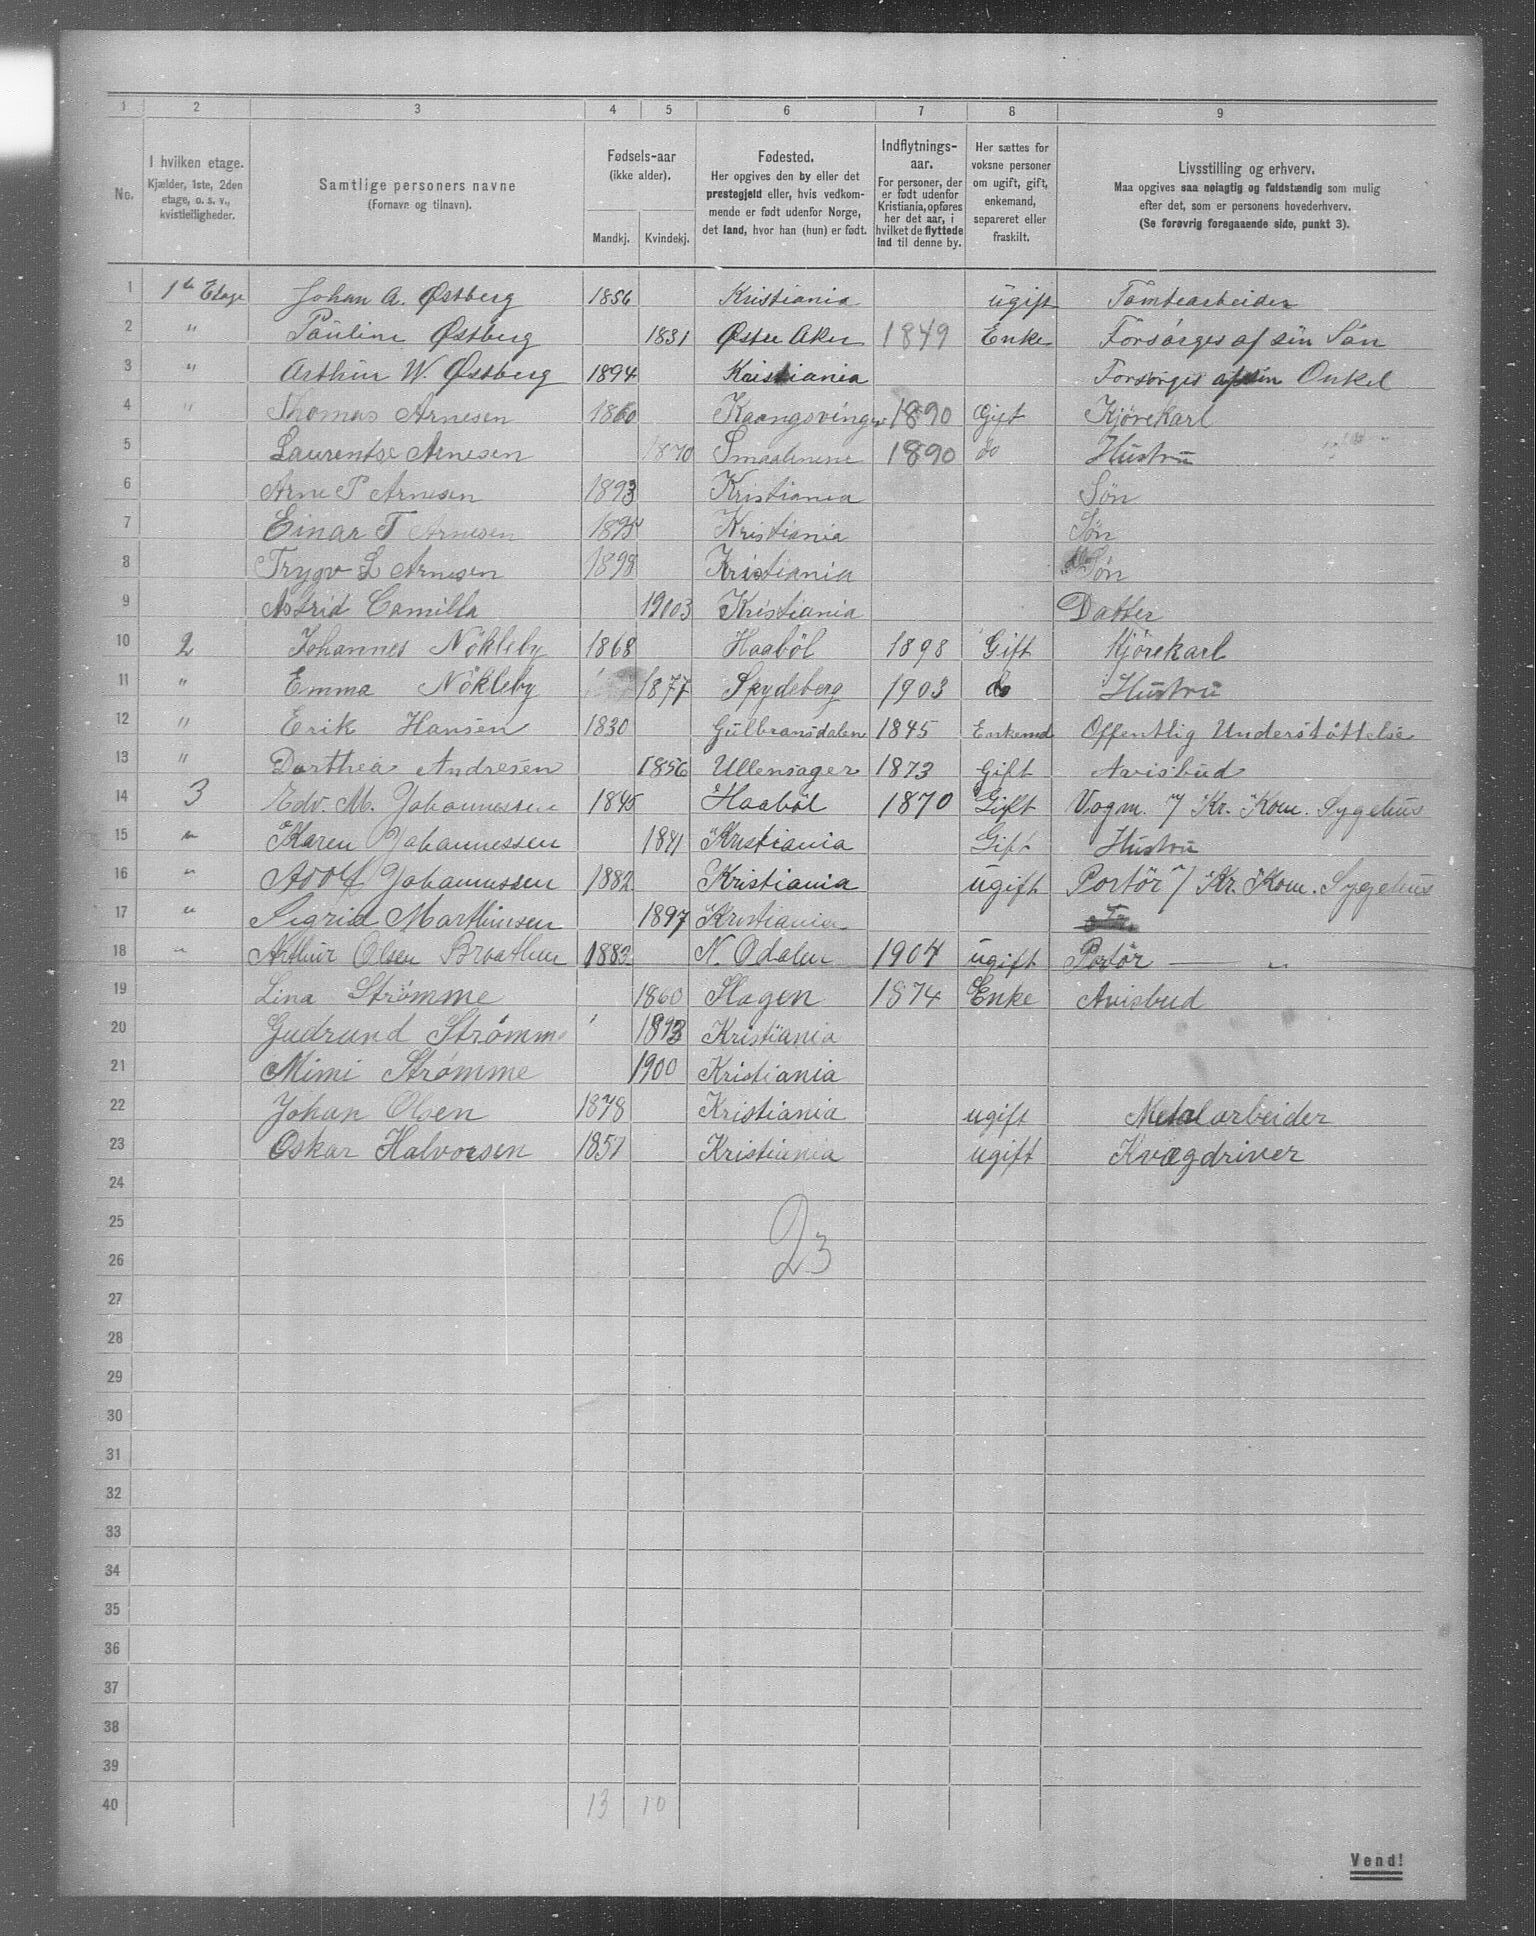 1 2 3 4 5 6 7 8 9
No. I hvilken etage. Kjælder, 1ste, 2den etage, o. s. v., kvistleiligheder. Samtlige personers navne (Fornavn og tilnavn). Fødsels-aar (ikke alder). Mandkj. Kvindekj. Fødested. Her opgives den by eller det prestegjeld eller, hvis vedkommende er født udenfor Norge, det land, hvor han (hun) er født. Indflytnings-aar. For personer, der er født udenfor Kristiania, opføres her det aar, i hvilket de flyttede ind til denne by. Her sættes for voksne personer om ugift, gift, enkemand, separeret eller fraskilt. Livsstilling og erhverv. Maa opgives saa nøiagtig og fuldstændig som mulig efter det, som er personens hovederhverv. (Se forøvrig foregaaende side, punkt 3).
1 1ste Etage Johan A. Østberg 1856 Kristiania ugift Tomtearbeider
2 " Pauline Østberg 1831 Øster Aker 1849 Enke Forsørges af sin Søn
3 " Arthur W. Østberg 1894 Kristiania Forsørges af sin Onkel
4 " Thomas Arnesen 1860 Kongsvinger 1890 Gift Kjørekarl
5 Laurentse Arnesen 1870 Smaalenene 1890 do Hustru
6 Arne P Arnesen 1893 Kristiania Søn
7 Einar T Arnesen 1895 Kristiania Søn
8 Trygv L Arnesen 1898 Kristiania Søn
9 Astrid Camilla 1903 Kristiania Datter
10 2 Johannes Nökleby 1868 Haaböl 1898 Gift Kjörekarl
11 " Emma Nökleby 1877 Spydeberg 1903 do Hustru
12 " Erik Hansen 1830 Gulbransdalen 1845 Enkemd Offentlig Understøttelse
13 " Dorthea Andresen 1856 Ullensager 1873 Gift Avisbud
14 3 Edv. M. Johannessen 1845 Haaböl 1870 Gift Vogm. v/ Kr. Kom. Sygehus
15 " Karen Johannessen 1841 Kristiania Gift Hustru
16 " Adolf Johannessen 1882 Kristiania ugift Portör v/ Kr. Kom. Sygehus
17 " Sigrid Marthinsen 1897 Kristiania
18 " Arthur Olsen Braathen 1883 N. Odalen 1904 ugift Portör — " —
19 Lina Strømme 1860 Slagen 1874 Enke Avisbud
20 Gudrund Strømme 1893 Kristiania
21 Mimi Strømme 1900 Kristiania
22 Johan Olsen 1878 Kristiania ugift Metalarbeider
23 Oskar Halvorsen 1857 Kristiania ugift Kvægdriver
24
25
23
26
27
28
29
30
31
32
33
34
35
36
37
38
39
40 13 10
Vend!